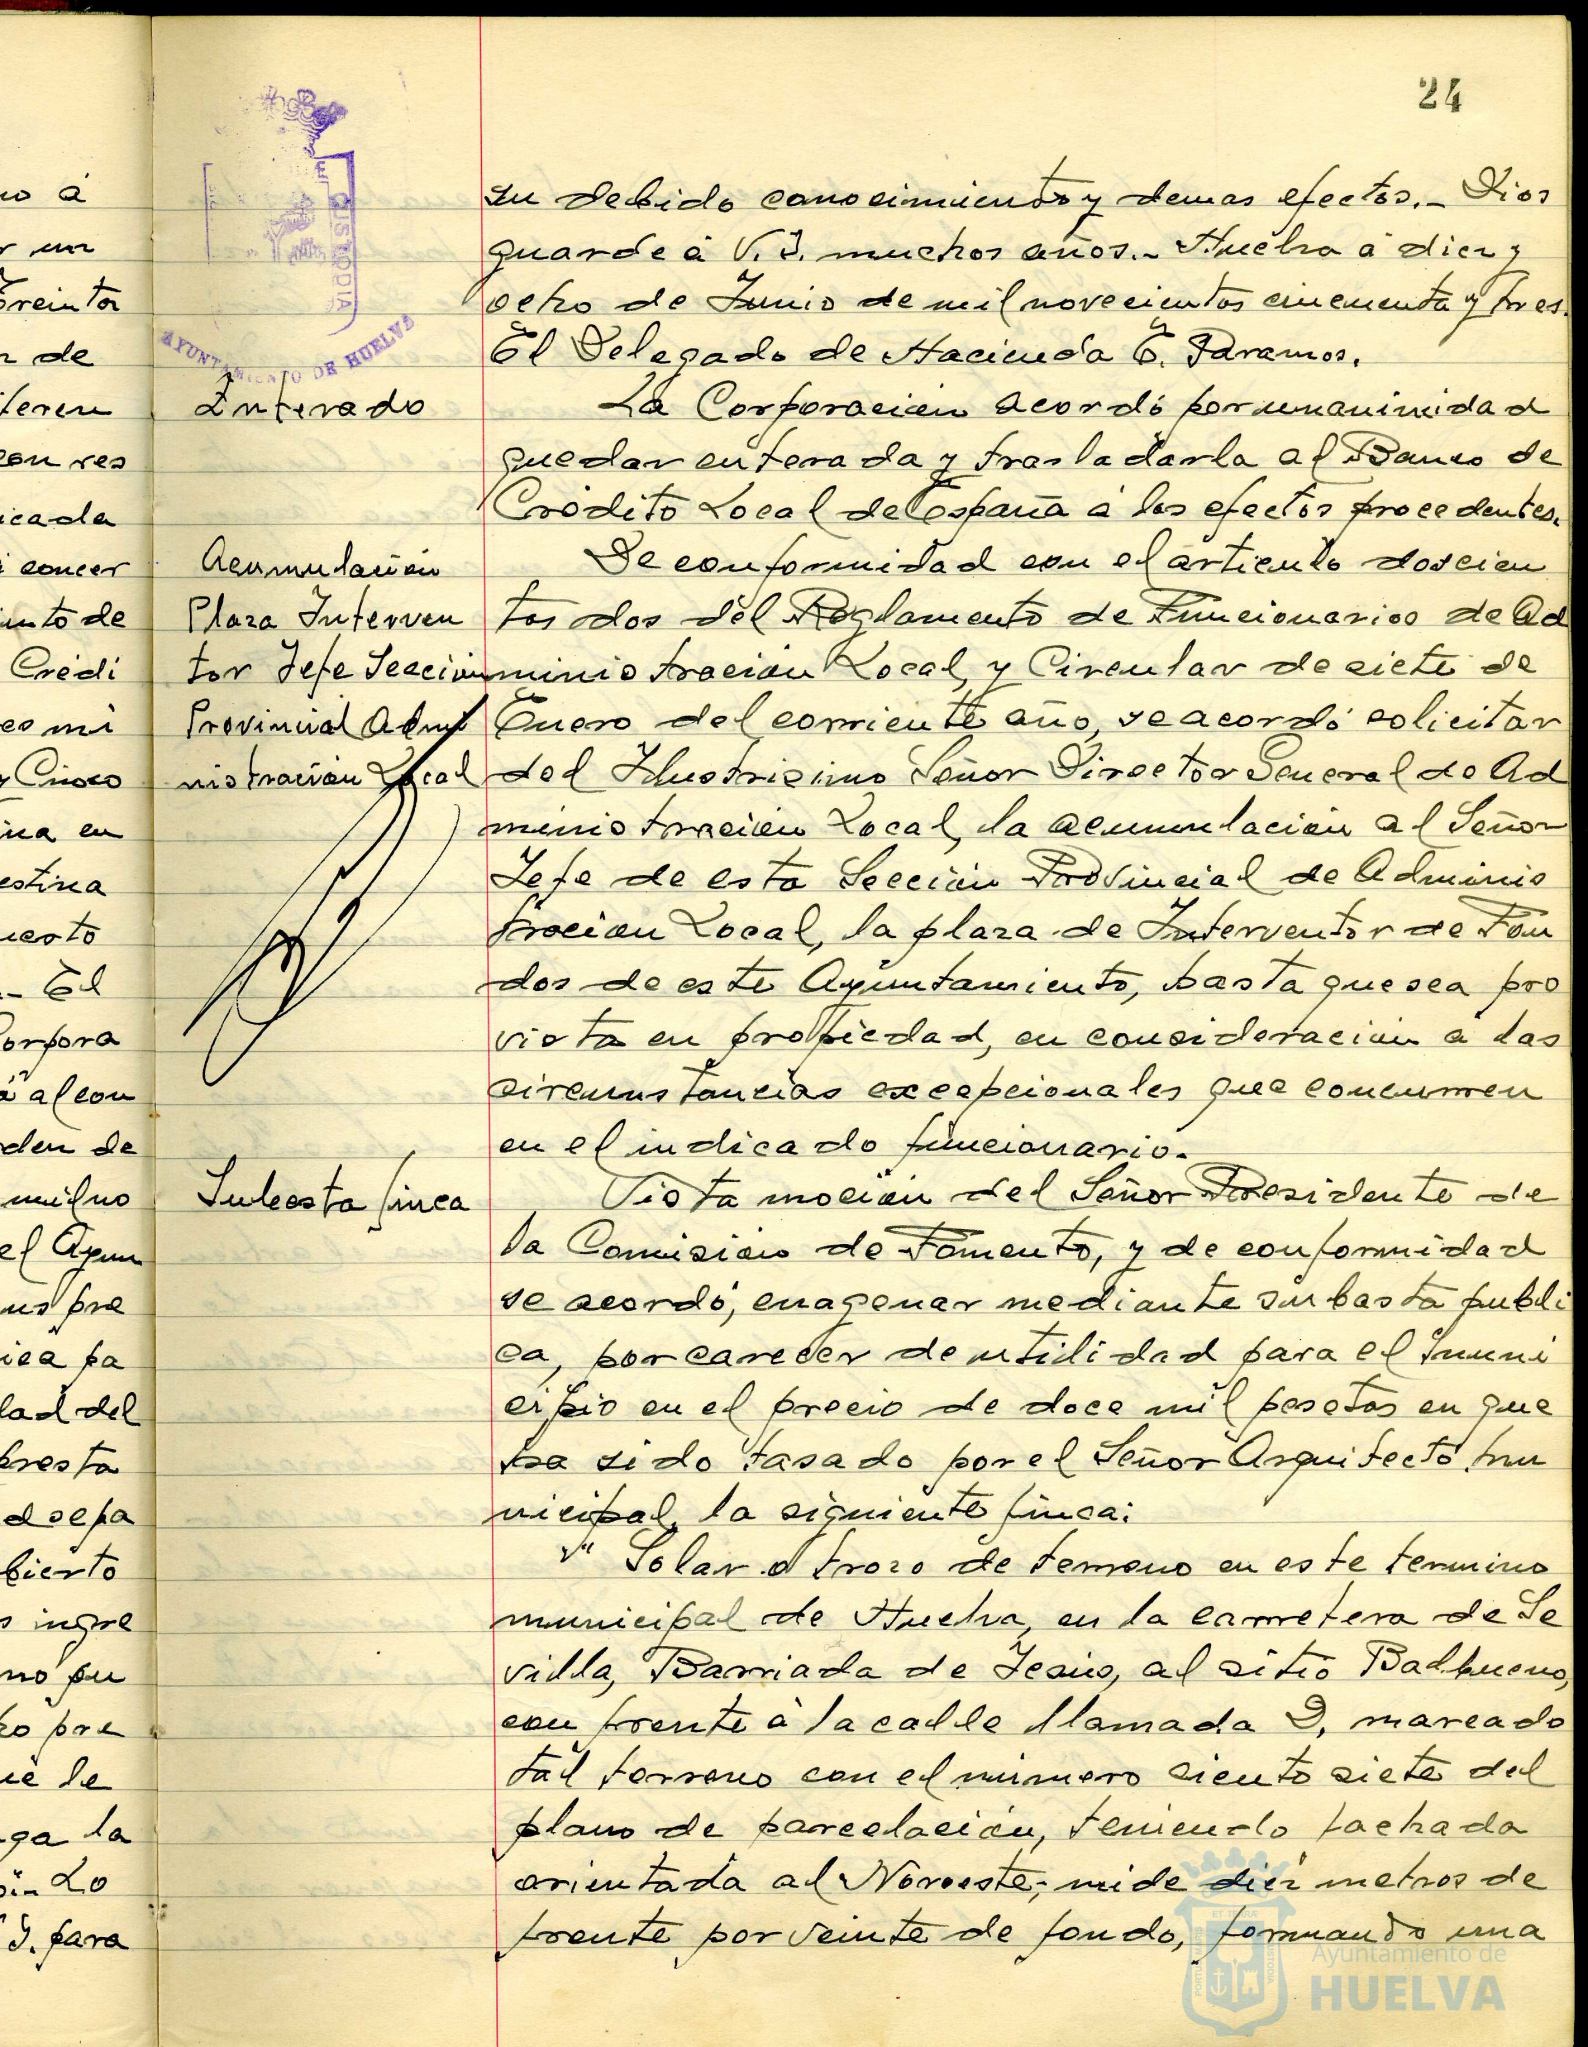 24
su debido conocimiento y demas efectos.- Dios
guarde á V. I. muchos años.- Huelva á diez y
ocho de Junio de mil novecientos cincuenta y tres.
El Delegado de Hacienda E. Paramos.
Enterado
La Corporacion acordó por unanimidad
quedar enterada y trasladarla al Banco de
Crédito Local de España á los efectos procedentes.
Acumulación
Plaza Interven
tor Jefe Sección
Provincial Admi
nistración Local
De conformidad con el articulo doscien
tos dos del Reglamento de Funcionarios de Ad
ministración Local, y Circular de siete de
Enero del corriente año, se acordó solicitar
del Ilustrisimo Señor Director General de Ad
ministración Local, la acumulación al Señor
Jefe de esta Sección Provincial de Adminis
tracion Local, la plaza de Interventor de Fon
dos de este Ayuntamiento, hasta que sea pro
vista en propiedad, en consideración á las
circunstancias excepcionales que concurren
en el indicado funcionario.
Subasta finca
Vista moción del Señor Presidente de
la Comisión de Fomento, y de conformidad
se acordó, enagenar mediante subasta publi
ca, por carecer de utilidad para el muni
cipio en el precio de doce mil pesetas en que
ha sido tasado por el Señor Arquitecto mu
nicipal, la siguiente finca:
" Solar o trozo de terreno en este termino
municipal de Huelva, en la carretera de Se
villa, Barriada de Jesús, al sitio Balbueno,
con frente á la calle llamada D, marcado
tal terreno con el número ciento siete del
plano de parcelación, teniendo fachada
orientada al Noroeste; mide diez metros de
frente por veinte de fondo, formando una
no á
r un
Treinta
n de
feren
con res
icada
i concer
unto de
Crédi
es mi
y Cinco
ina en
estina
uesto
.- El
Corpora
á al con
den de
mil no
el Ayun
us pre
ica pa
dad del
presta
d se pa
bierto
s ingre
no pu
to pre
ue le
ga la
ó.- Lo
I. para
CUSTODIA
AYUNTAMIENTO DE HUELVA
Ayuntamiento de
HUELVA